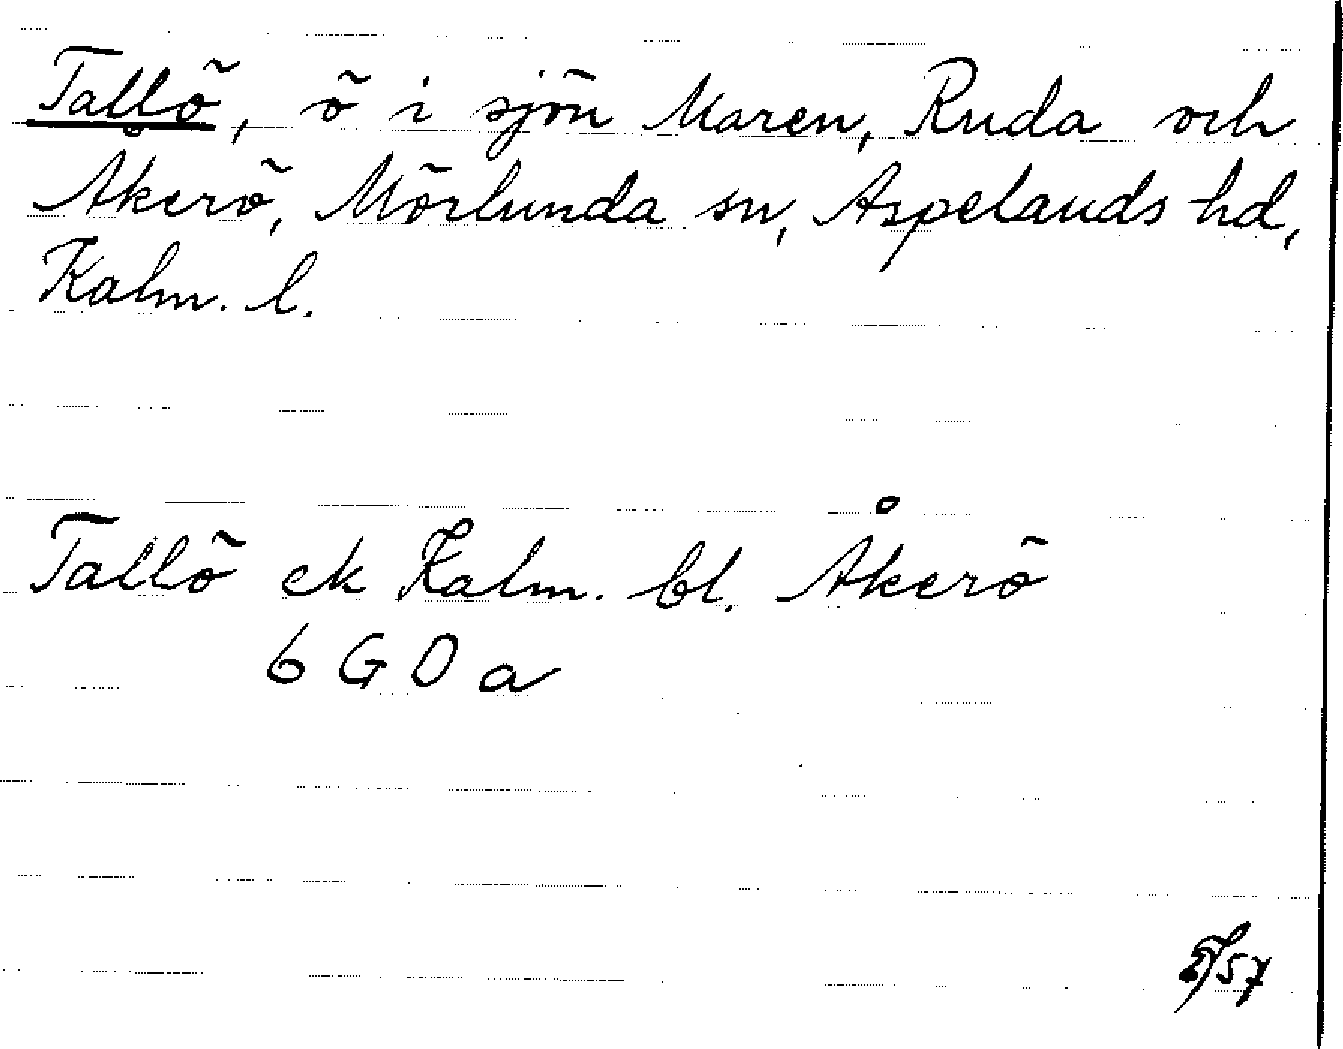 Tallö, ö i sjön Maren, Ruda och
Åkerö, Mörlunda sn, Aspelands hd,
Kalm. l.
Tallö ek Kalm. bl. Åkerö
6 G 0 a
57